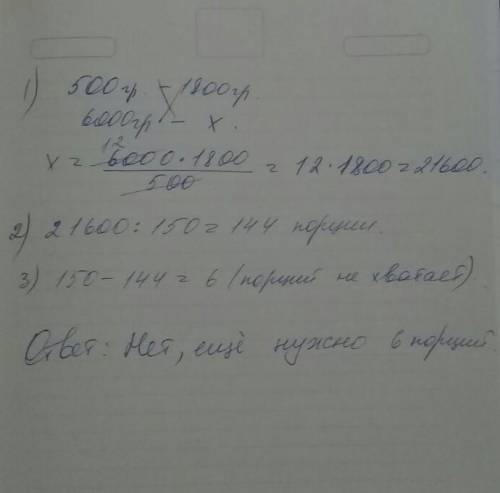 1) 500 гр. – 1800 гр.
6000 гр – x.
x = 6000 · 1800 / 500 = 12 · 1800 = 21600.
12
2) 21600 : 150 = 144 порции.
3) 150 – 144 = 6 (порций не хватает)
Ответ: Нет, ещё нужно 6 порций.